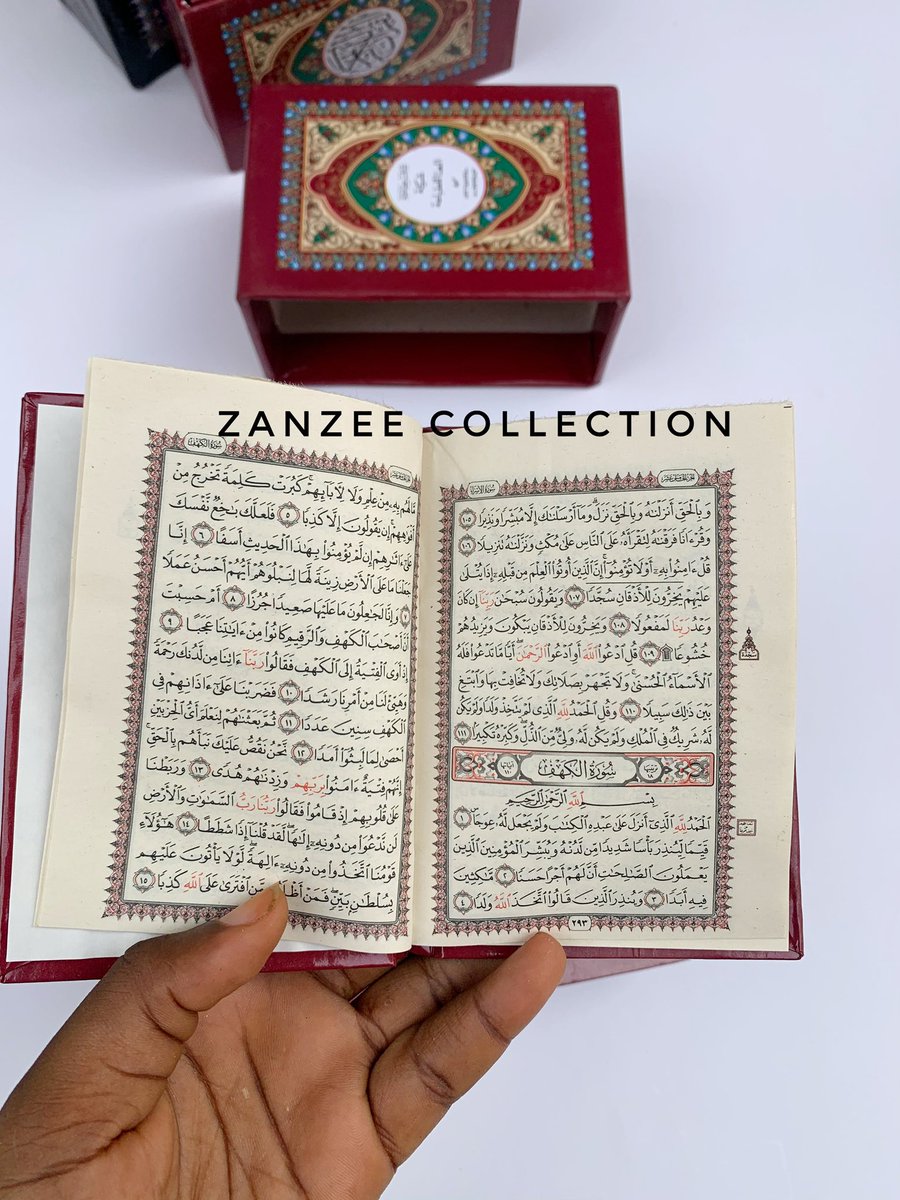 ZANZEE COLLECTION
سُورَةُ الإِسْرَاءِ
وَبِٱلْحَقِّ أَنزَلْنَٰهُ وَبِٱلْحَقِّ نَزَلَ ۗ وَمَآ أَرْسَلْنَٰكَ إِلَّا مُبَشِّرًا وَنَذِيرًا ١٠٥
وَقُرْءَانًا فَرَقْنَٰهُ لِتَقْرَأَهُۥ عَلَى ٱلنَّاسِ عَلَىٰ مُكْثٍ وَنَزَّلْنَٰهُ تَنزِيلًا ١٠٦
قُلْ ءَامِنُوا۟ بِهِۦٓ أَوْ لَا تُؤْمِنُوٓا۟ ۚ إِنَّ ٱلَّذِينَ أُوتُوا۟ ٱلْعِلْمَ مِن قَبْلِهِۦٓ إِذَا يُتْلَىٰ
عَلَيْهِمْ يَخِرُّونَ لِلْأَذْقَانِ سُجَّدًا ١٠٧ وَيَقُولُونَ سُبْحَٰنَ رَبِّنَآ إِن كَانَ
وَعْدُ رَبِّنَا لَمَفْعُولًا ١٠٨ وَيَخِرُّونَ لِلْأَذْقَانِ يَبْكُونَ وَيَزِيدُهُمْ
خُشُوعًا ۩ ١٠٩ قُلِ ٱدْعُوا۟ ٱللَّهَ أَوِ ٱدْعُوا۟ ٱلرَّحْمَٰنَ ۖ أَيًّا مَّا تَدْعُوا۟ فَلَهُ
ٱلْأَسْمَآءُ ٱلْحُسْنَىٰ ۚ وَلَا تَجْهَرْ بِصَلَاتِكَ وَلَا تُخَافِتْ بِهَا وَٱبْتَغِ
بَيْنَ ذَٰلِكَ سَبِيلًا ١١٠ وَقُلِ ٱلْحَمْدُ لِلَّهِ ٱلَّذِى لَمْ يَتَّخِذْ وَلَدًا وَلَمْ يَكُن
لَّهُۥ شَرِيكٌ فِى ٱلْمُلْكِ وَلَمْ يَكُن لَّهُۥ وَلِىٌّ مِّنَ ٱلذُّلِّ ۖ وَكَبِّرْهُ تَكْبِيرًا ١١١
سُورَةُ الكَهْفِ
بِسْمِ ٱللَّهِ ٱلرَّحْمَٰنِ ٱلرَّحِيمِ
ٱلْحَمْدُ لِلَّهِ ٱلَّذِىٓ أَنزَلَ عَلَىٰ عَبْدِهِ ٱلْكِتَٰبَ وَلَمْ يَجْعَل لَّهُۥ عِوَجَا ١
قَيِّمًا لِّيُنذِرَ بَأْسًا شَدِيدًا مِّن لَّدُنْهُ وَيُبَشِّرَ ٱلْمُؤْمِنِينَ ٱلَّذِينَ
يَعْمَلُونَ ٱلصَّٰلِحَٰتِ أَنَّ لَهُمْ أَجْرًا حَسَنًا ٢ مَّٰكِثِينَ
فِيهِ أَبَدًا ٣ وَيُنذِرَ ٱلَّذِينَ قَالُوا۟ ٱتَّخَذَ ٱللَّهُ وَلَدًا ٤
٢٩٣
سُورَةُ الكَهْفِ
مَّا لَهُم بِهِۦ مِنْ عِلْمٍ وَلَا لِءَابَآئِهِمْ ۚ كَبُرَتْ كَلِمَةً تَخْرُجُ مِنْ
أَفْوَٰهِهِمْ ۚ إِن يَقُولُونَ إِلَّا كَذِبًا ٥ فَلَعَلَّكَ بَٰخِعٌ نَّفْسَكَ
عَلَىٰٓ ءَاثَٰرِهِمْ إِن لَّمْ يُؤْمِنُوا۟ بِهَٰذَا ٱلْحَدِيثِ أَسَفًا ٦ إِنَّا
جَعَلْنَا مَا عَلَى ٱلْأَرْضِ زِينَةً لَّهَا لِنَبْلُوَهُمْ أَيُّهُمْ أَحْسَنُ عَمَلًا
٧ وَإِنَّا لَجَٰعِلُونَ مَا عَلَيْهَا صَعِيدًا جُرُزًا ٨ أَمْ حَسِبْتَ
أَنَّ أَصْحَٰبَ ٱلْكَهْفِ وَٱلرَّقِيمِ كَانُوا۟ مِنْ ءَايَٰتِنَا عَجَبًا ٩
إِذْ أَوَى ٱلْفِتْيَةُ إِلَى ٱلْكَهْفِ فَقَالُوا۟ رَبَّنَآ ءَاتِنَا مِن لَّدُنكَ رَحْمَةً
وَهَيِّئْ لَنَا مِنْ أَمْرِنَا رَشَدًا ١٠ فَضَرَبْنَا عَلَىٰٓ ءَاذَانِهِمْ فِى
ٱلْكَهْفِ سِنِينَ عَدَدًا ١١ ثُمَّ بَعَثْنَٰهُمْ لِنَعْلَمَ أَىُّ ٱلْحِزْبَيْنِ
أَحْصَىٰ لِمَا لَبِثُوٓا۟ أَمَدًا ١٢ نَّحْنُ نَقُصُّ عَلَيْكَ نَبَأَهُم بِٱلْحَقِّ ۚ
إِنَّهُمْ فِتْيَةٌ ءَامَنُوا۟ بِرَبِّهِمْ وَزِدْنَٰهُمْ هُدًى ١٣ وَرَبَطْنَا
عَلَىٰ قُلُوبِهِمْ إِذْ قَامُوا۟ فَقَالُوا۟ رَبُّنَا رَبُّ ٱلسَّمَٰوَٰتِ وَٱلْأَرْضِ
لَن نَّدْعُوَا۟ مِن دُونِهِۦٓ إِلَٰهًا ۖ لَّقَدْ قُلْنَآ إِذًا شَطَطًا ١٤ هَٰٓؤُلَآءِ
قَوْمُنَا ٱتَّخَذُوا۟ مِن دُونِهِۦٓ ءَالِهَةً ۖ لَّوْلَا يَأْتُونَ عَلَيْهِم
بِسُلْطَٰنٍۭ بَيِّنٍ ۖ فَمَنْ أَظْلَمُ مِمَّنِ ٱفْتَرَىٰ عَلَى ٱللَّهِ كَذِبًا ١٥